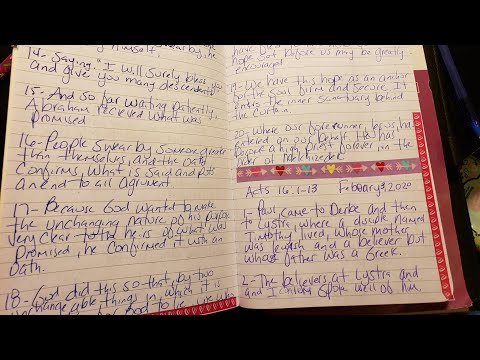 himself,
14- Saying, "I will surely bless you
and give you many descendents
15- And so far waiting patiently
Abraham recieved what was
promised
16- People swear by someone greater
than themselves, and the oath
confirms, what is said and puts
an end to all argument
17- Because God wanted to make
the unchanging nature of his purpose
very clear to the heirs of what was
promised, he confirmed it with an
oath.
18- God did this so that, by two
unchangeable things in which it is
God to lie, we who
hope set before us may be greatly
encouraged
19- We have this hope as an anchor
for the soul firm and secure. It
enters the inner sanctuary behind
the curtain.
20- Where our forerunner, Jesus, has
entered on our behalf. He has
become a high priest forever in the
order of Melchizedek
Acts 16:1-13 February 3, 2020
1- Paul came to Derbe and then
to Lystra, where a disciple named
Timothy lived, whose mother
was Jewish and a believer but
whose father was a Greek.
2- The believers at Lystra and
and Iconium spoke well of him.